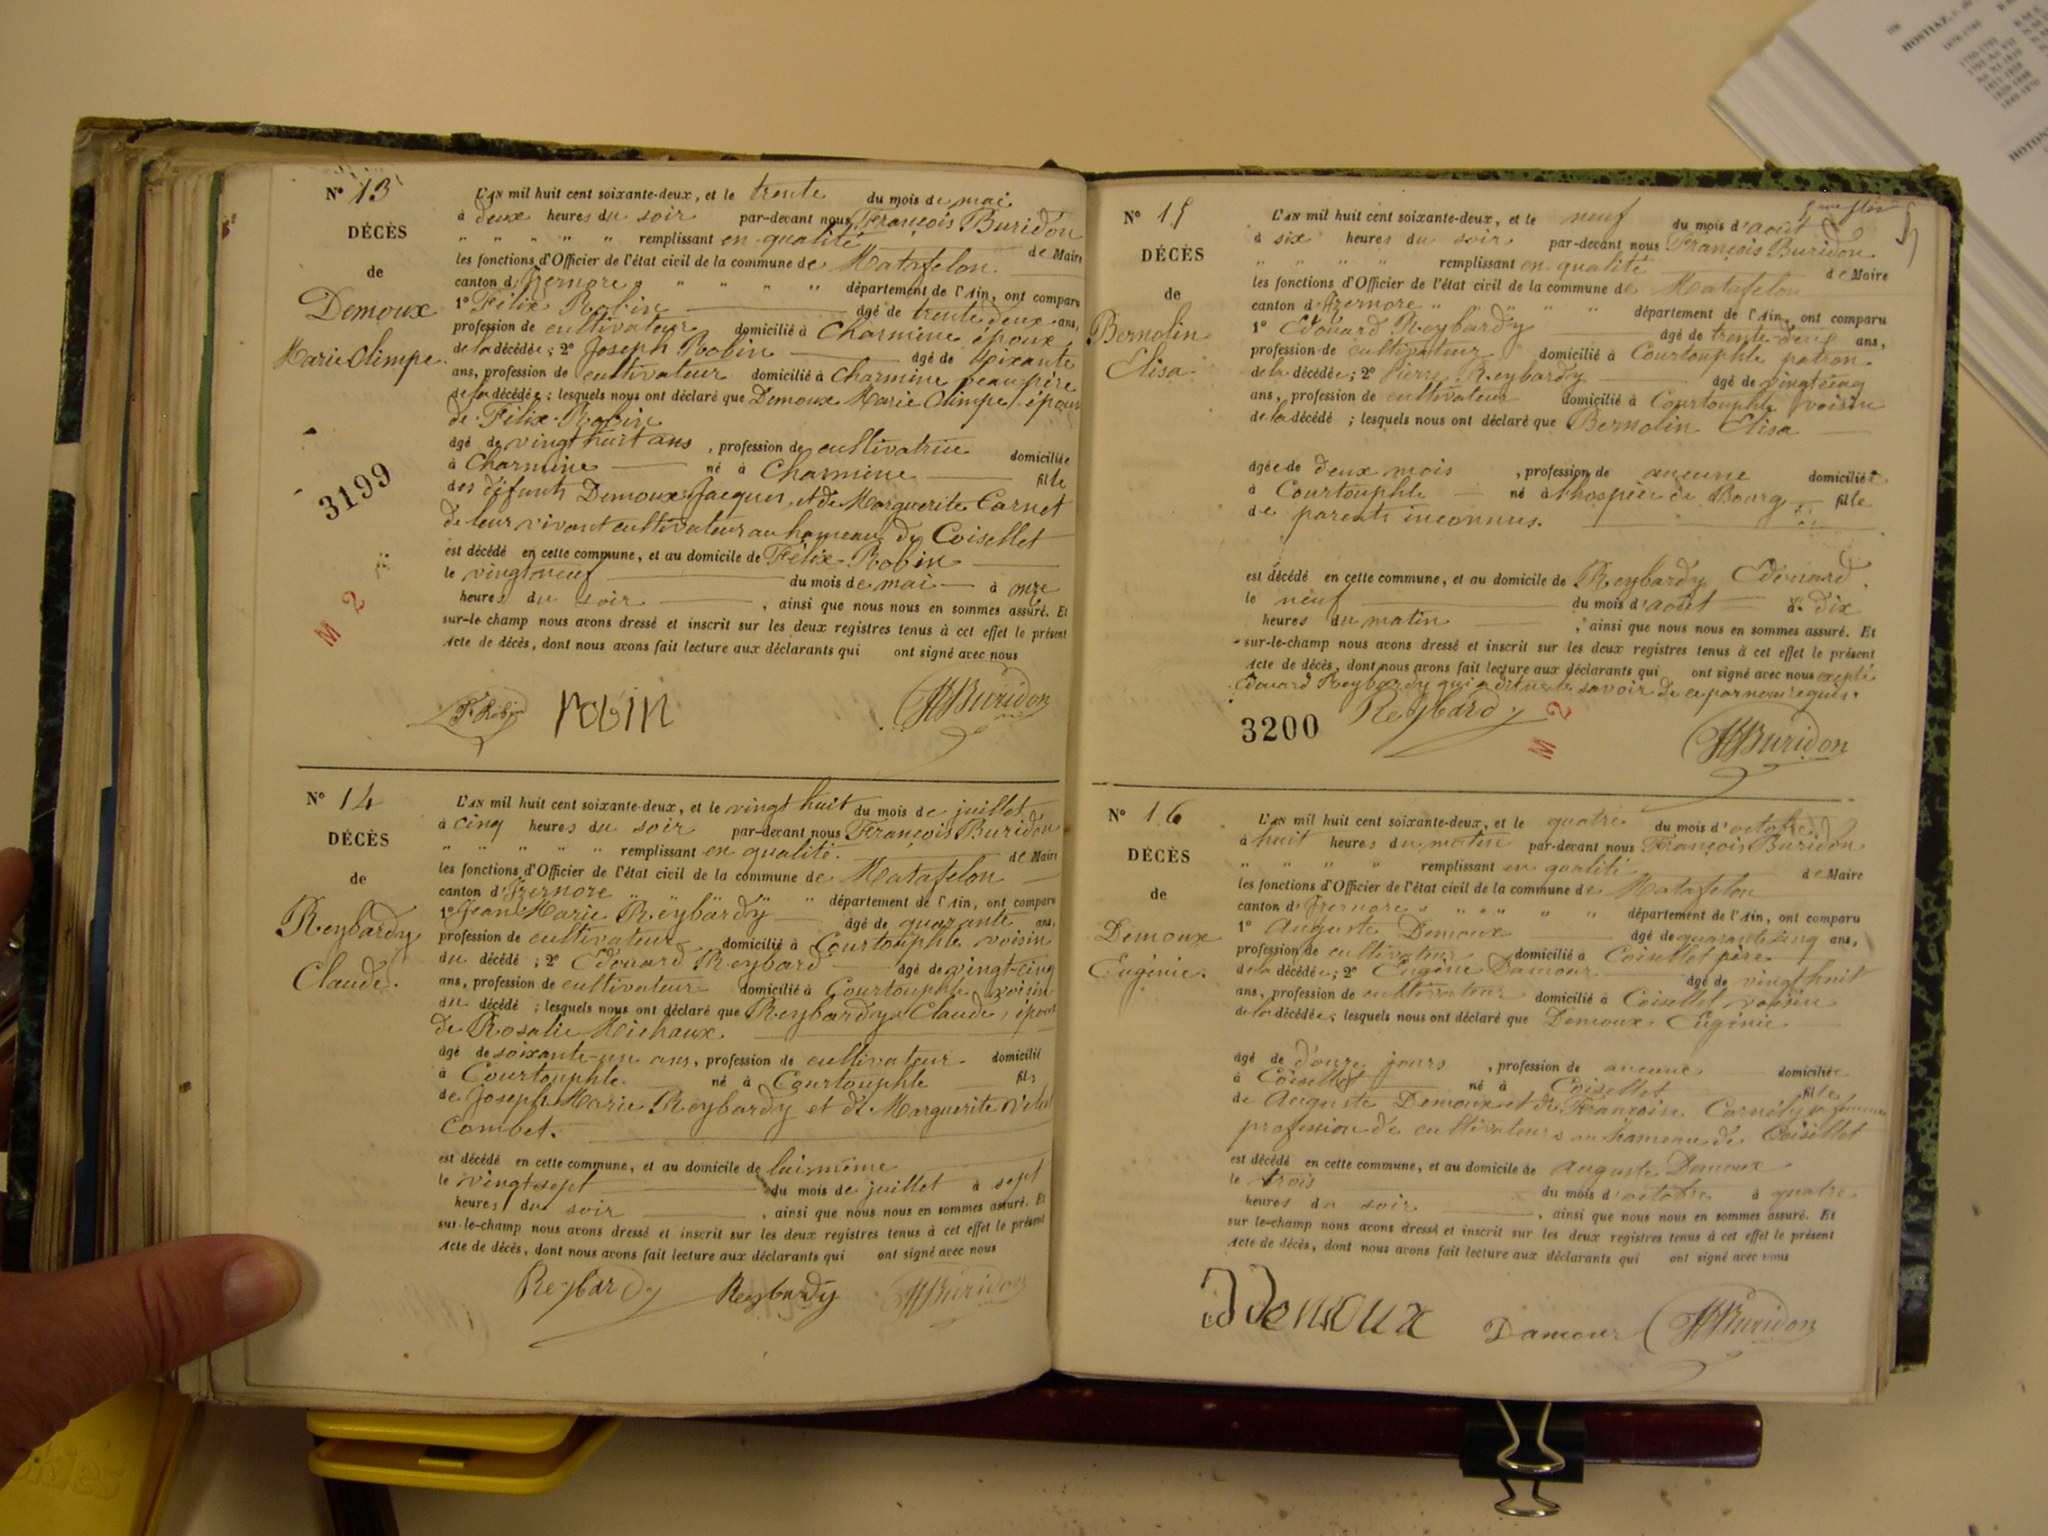 N° 13
DÉCÈS
de
Demoux
Marie Olimpe
3199
M 2
L'AN mil huit cent soixante-deux, et le trente du mois de mai
à deux heures du soir par-devant nous François Buridon
" " " " " remplissant en qualité de Maire
les fonctions d'Officier de l'état civil de la commune de Matafelon
canton d'Izernore " " " " département de l'Ain, ont comparu
1° Félix Robin âgé de trente deux ans,
profession de cultivateur domicilié à Charmine époux
de la décédée; 2° Joseph Robin âgé de soixante
ans, profession de cultivateur domicilié à Charmine beau père
de la décédée; lesquels nous ont déclaré que Demoux Marie Olimpe, épouse
de Félix Robin
âgé de vingt huit ans, profession de cultivatrice domiciliée
à Charmine né à Charmine fille
des défunts Demoux Jacques, et de Marguerite Carnet
de leur vivant cultivateur au hameau de Coisellet
est décédé en cette commune, et au domicile de Félix Robin
le vingt neuf du mois de mai à onze
heures du soir, ainsi que nous nous en sommes assuré. Et
sur-le-champ nous avons dressé et inscrit sur les deux registres tenus à cet effet le présent
Acte de décès, dont nous avons fait lecture aux déclarants qui ont signé avec nous
F. Robin robin Buridon
N° 14
DÉCÈS
de
Reybardy
Claude.
L'AN mil huit cent soixante-deux, et le vingt huit du mois de juillet
à cinq heures du soir par-devant nous François Buridon
" " " " " remplissant en qualité de Maire
les fonctions d'Officier de l'état civil de la commune de Matafelon
canton d'Izernore " " " département de l'Ain, ont comparu
1° Jean Marie Reybardy âgé de quarante ans,
profession de cultivateur domicilié à Courtouphle voisin
du décédé; 2° Edouard Reybard âgé de vingt-cinq
ans, profession de cultivateur domicilié à Courtouphle voisin
du décédé; lesquels nous ont déclaré que Reybardy Claude, époux
de Rosalie Michaux
âgé de soixante-un ans, profession de cultivateur domicilié
à Courtouphle né à Courtouphle fils
de Joseph Marie Reybardy et de Marguerite
Combet.
est décédé en cette commune, et au domicile de lui même
le vingt-sept du mois de juillet à sept
heures du soir, ainsi que nous nous en sommes assuré. Et
sur-le-champ nous avons dressé et inscrit sur les deux registres tenus à cet effet le présent
Acte de décès, dont nous avons fait lecture aux déclarants qui ont signé avec nous
Reybardy Reybardy Buridon
N° 15
DÉCÈS
de
Bernolin
Elisa.
L'AN mil huit cent soixante-deux, et le neuf du mois d'août
à six heures du soir par-devant nous François Buridon
" " " " remplissant en qualité de Maire
les fonctions d'Officier de l'état civil de la commune de Matafelon
canton d'Izernore " " " " département de l'Ain, ont comparu
1° Edouard Reybardy âgé de trente deux ans,
profession de cultivateur domicilié à Courtouphle patron
de la décédée; 2° Pierre Reybardy âgé de vingt cinq
ans, profession de cultivateur domicilié à Courtouphle voisin
de la décédé; lesquels nous ont déclaré que Bernolin Elisa
âgée de deux mois, profession de aucune domiciliée
à Courtouphle né à l'hospice de Bourg fille
de parents inconnus.
est décédé en cette commune, et au domicile de Reybardy Edouard.
le neuf du mois d'août à dix
heures du matin, ainsi que nous nous en sommes assuré. Et
sur-le-champ nous avons dressé et inscrit sur les deux registres tenus à cet effet le présent
Acte de décès, dont nous avons fait lecture aux déclarants qui ont signé avec nous excepté
Edouard Reybardy qui a dit ne le savoir de ce par nous requis.
3200 Reybardy M 2 Buridon
N° 16
DÉCÈS
de
Demoux
Eugénie.
L'AN mil huit cent soixante-deux, et le quatre du mois d'octobre
à huit heures du matin par-devant nous François Buridon
" " " " remplissant en qualité de Maire
les fonctions d'Officier de l'état civil de la commune de Matafelon
canton d'Izernore " " " " département de l'Ain, ont comparu
1° Auguste Demoux âgé de quarante cinq ans,
profession de cultivateur domicilié à Coisellet père
de la décédée; 2° Eugène Damour âgé de vingt huit
ans, profession de cultivateur domicilié à Coisellet voisin
de la décédée; lesquels nous ont déclaré que Demoux Eugénie
âgé de d'ouze jours, profession de aucune domiciliée
à Coisellet né à Coisellet fille
de Auguste Demoux et de Françoise
profession de cultivateurs au hameau de Coisellet
est décédé en cette commune, et au domicile de Auguste Demoux
le trois du mois d'octobre à quatre
heures du soir, ainsi que nous nous en sommes assuré. Et
sur-le-champ nous avons dressé et inscrit sur les deux registres tenus à cet effet le présent
Acte de décès, dont nous avons fait lecture aux déclarants qui ont signé avec nous
Demoux Damour Buridon
HOSTIAZ